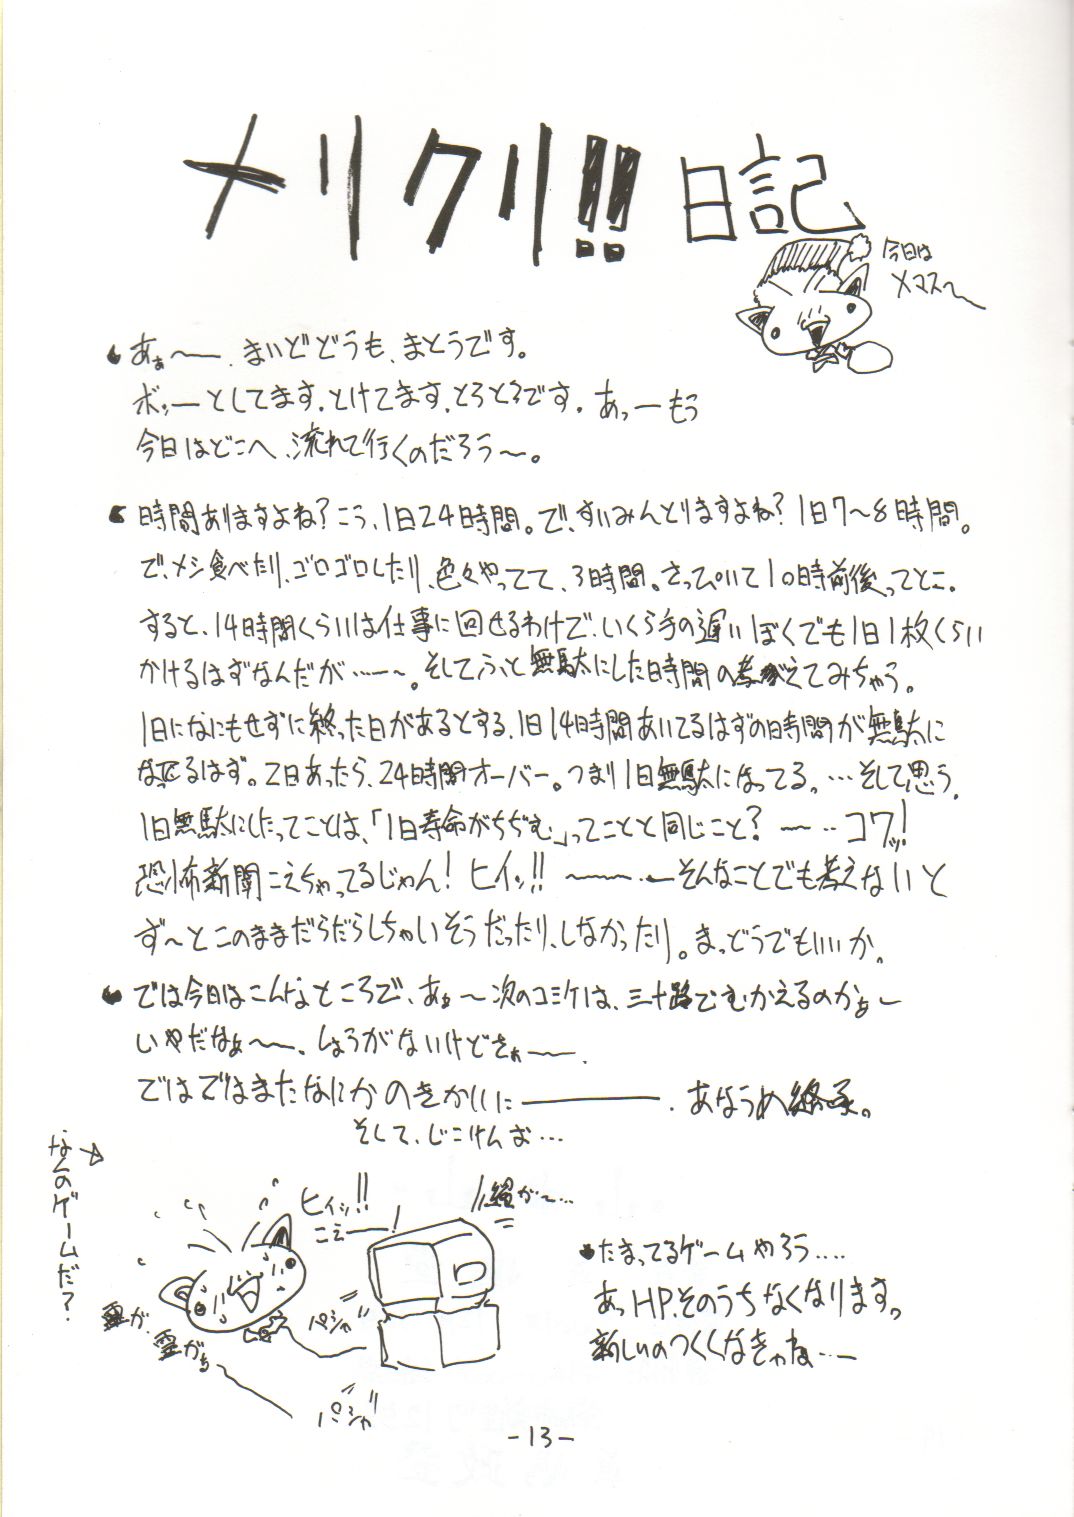 メリクリ!! 日記
今日は
Xマス〜
あぁ〜ー.まいどどうも、まとうです。
ボッーとしてます.とけてます.とろとろです。あっーもう
今日はどこへ、流れて行くのだろう〜。
時間ありますよね?こう、1日24時間。で、すいみんとりますよね?1日7〜8時間。
で、メシ食べたり、ゴロゴロしたり、色々やってて、3時間。さっぴいて10時前後ってとこ。
すると、14時間くらいは仕事に回せるわけで、いくら手の遅いぼくでも1日1枚くらい
かけるはずなんだが……〜。そしてふと無駄にした時間の考がえてみちゃう。
1日になにもせずに終った日があるとする、1日14時間あいてるはずの時間が無駄に
なってるはず。2日あったら、24時間オーバー。つまり1日無駄になってる。…そして思う.
1日無駄にしたってことは、「1日寿命がちぢむ」ってことと同じこと?ー‥コワッ!
恐怖新聞こえちゃってるじゃん!ヒイッ!! 〜〜‥ーそんなことでも考えないと
ず〜とこのままだらだらしちゃいそうだったり、しなかったり。まっどうでもいいか。
では今日はこんなところで、あぁ〜次のコミケは、三十路でむかえるのかぁー
いやだなぁ〜ー、しょうがないけどさぁーー.
ではではまたなにかのきかいにーーーー.あなうめ終了。
そして、じこけんお…
なんのゲームだ?
ヒィッ!!
こえー!
パシャ"
霊が、
霊がぁ
パシャ"
たまってるゲームやろう‥‥
あっHP.そのうちなくなります。
新しいのつくくなきゃね…ー
-13-